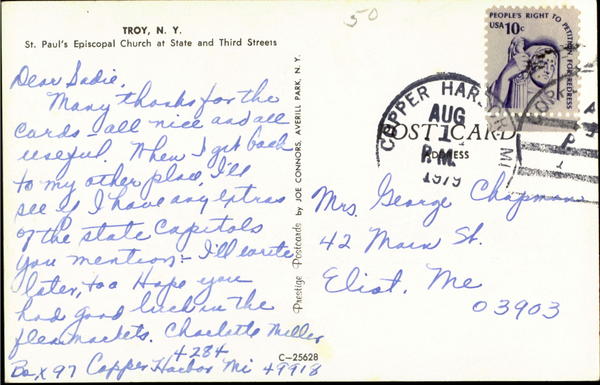 TROY, N. Y.
St. Paul's Episcopal Church at State and Third Streets
50
Dear Sadie,
Many thanks for the
cards - all nice and all
useful. When I get back
to my other place, I'll
see if I have any extras
of the state Capitals
you mention - I'll write
later, too Hope you
had good luck in the
flea markets. Charlotte Miller
+284
Box 97 Copper Harbor Mi 49918
Prestige Postcards by JOE CONNORS, AVERILL PARK, N. Y.
C-25628
PEOPLE'S RIGHT TO PETITION FOR REDRESS
USA 10c
COPPER HARBOR MI
AUG
1
P.M.
1979
POST CARD
ADDRESS
Mrs. George Chapman
42 Main St.
Eliot, Me
03903